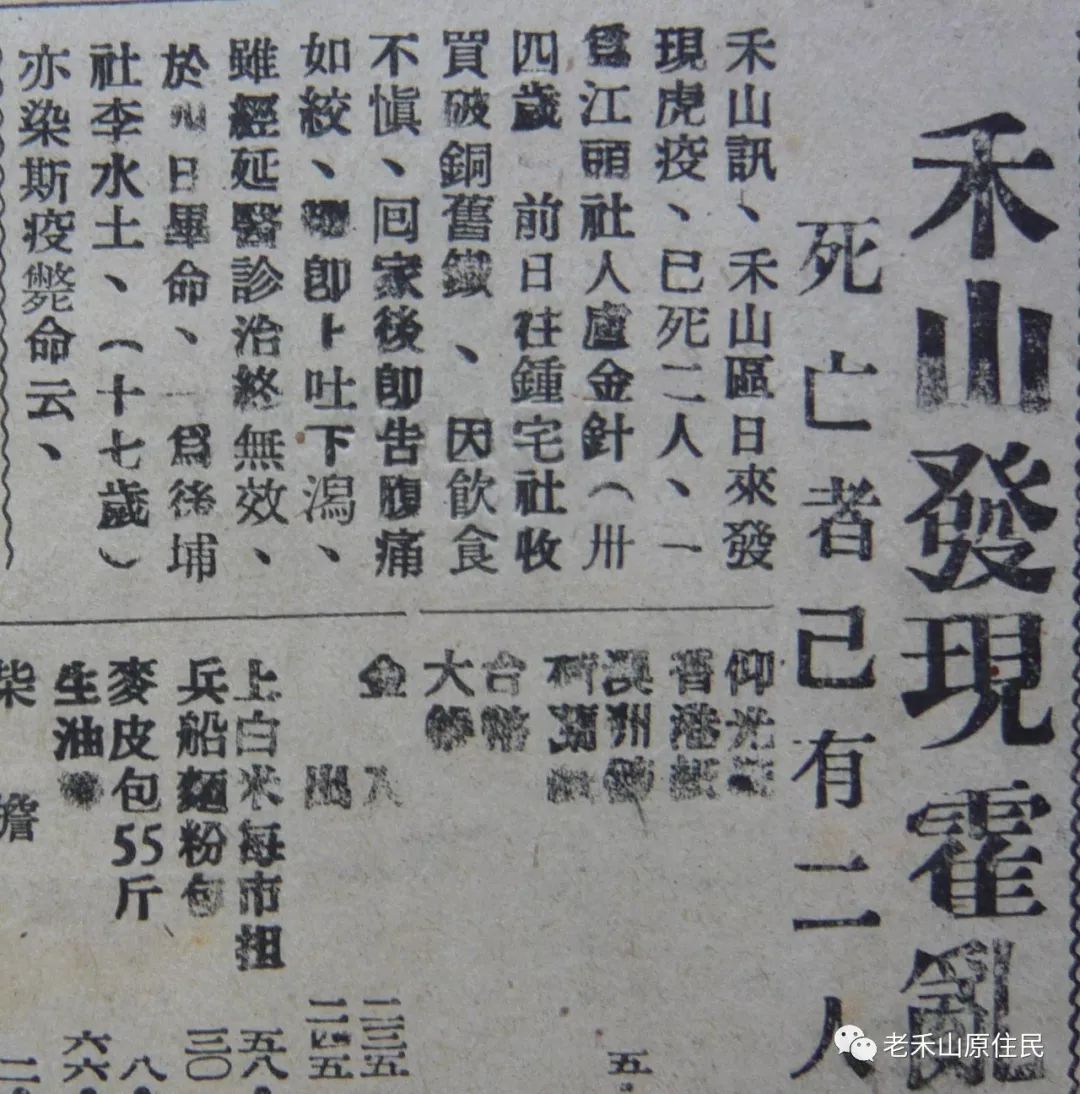 禾山發現霍亂
死亡者已有二人
禾山訊、禾山區日來發
現虎疫、已死二人、一
爲江頭社人盧金針（卅
四歲 前日往鍾宅社收
買破銅舊鐵、因飲食
不愼、回家後卽告腹痛
如絞、卽上吐下瀉、
雖經延醫診治終無效、
於日畢命、一爲後埔
社李水土、（十七歲）
亦染斯疫斃命云、
仰光
香港紙
澳州
台幣
大
金 入 二三五
出 二四五
上白米每市担 五八.
兵船麵粉包 三〇
麥皮包55斤 八.
生油 六六.
柴 擔 二.
五.
老禾山原住民